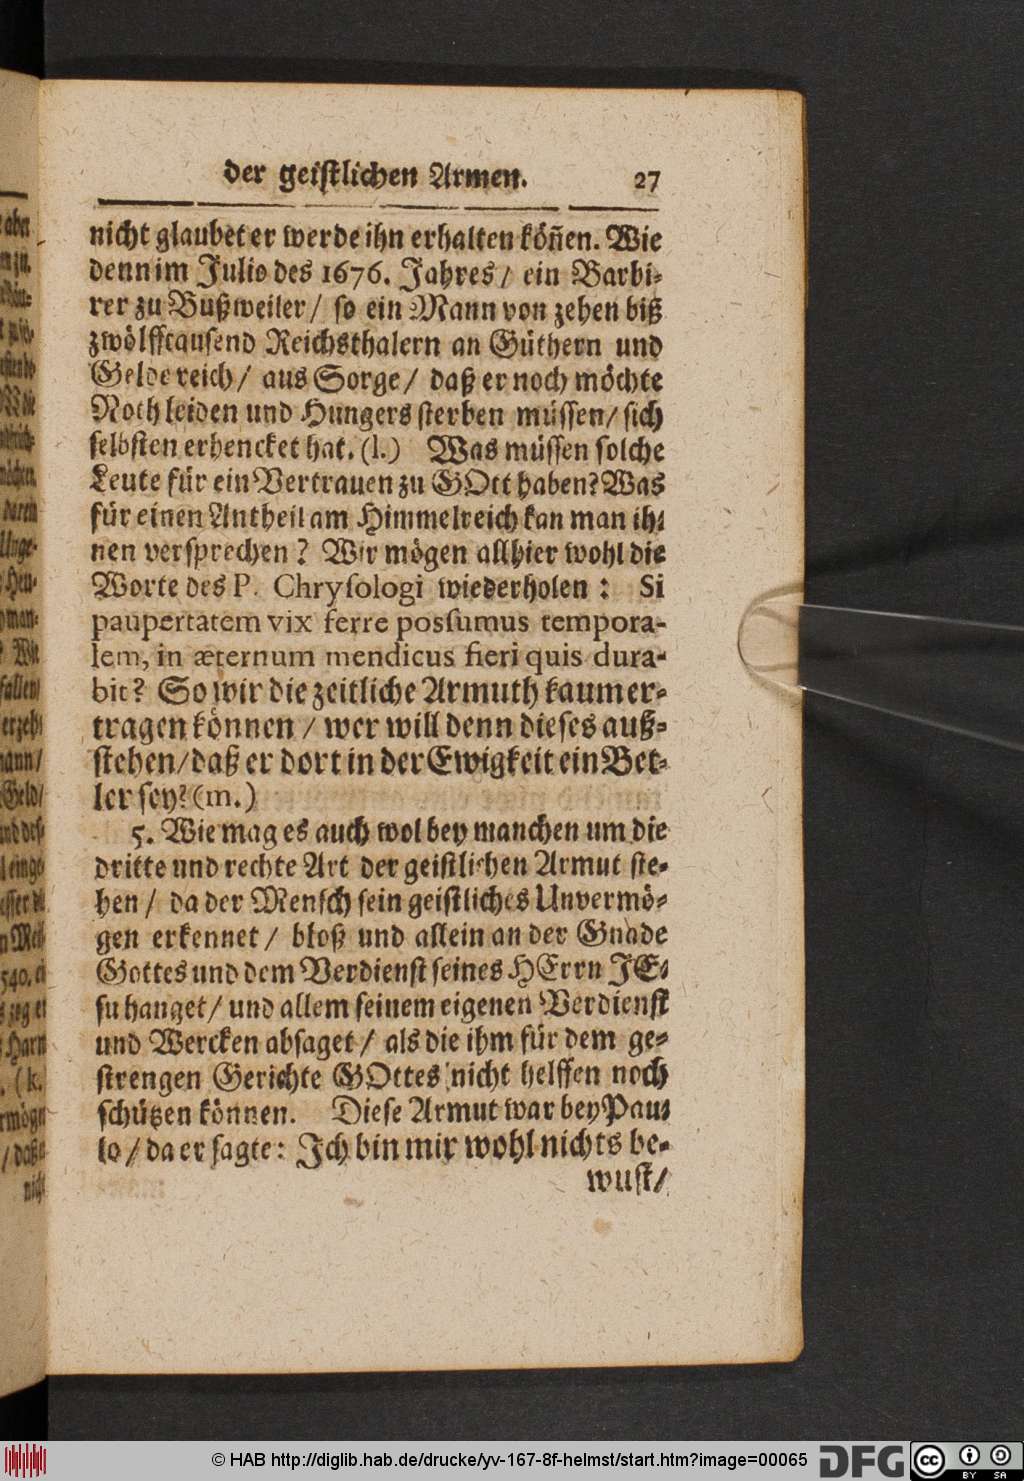 der geistlichen Armen. 27
nicht glaubet er werde ihn erhalten kön̄en. Wie
denn im Julio des 1676. Jahres / ein Barbi-
rer zu Bußweiler / so ein Mann von zehen biß
zwölfftausend Reichsthalern an Güthern und
Gelde reich / aus Sorge / daß er noch möchte
Noth leiden und Hungers sterben müssen / sich
selbsten erhencket hat. (l.) Was müssen solche
Leute für ein Vertrauen zu GOtt haben? Was
für einen Antheil am Himmelreich kan man ih-
nen versprechen? Wir mögen allhier wohl die
Worte des P. Chrysologi wiederholen: Si
paupertatem vix ferre possumus tempora-
lem, in æternum mendicus fieri quis dura-
bit? So wir die zeitliche Armuth kaum er-
tragen können / wer will denn dieses auß-
stehen / daß er dort in der Ewigkeit ein Bet-
ler sey? (m.)
5. Wie mag es auch wol bey manchen um die
dritte und rechte Art der geistlichen Armut ste-
hen / da der Mensch sein geistliches Unvermö-
gen erkennet / bloß und allein an der Gnade
Gottes und dem Verdienst seines HErrn JE-
su hanget / und allem seinem eigenen Verdienst
und Wercken absaget / als die ihm für dem ge-
strengen Gerichte GOttes nicht helffen noch
schützen können. Diese Armut war bey Pau-
lo / da er sagte: Ich bin mir wohl nichts be-
wust /
© HAB http://diglib.hab.de/drucke/yv-167-8f-helmst/start.htm?image=00065 DFG cc BY SA